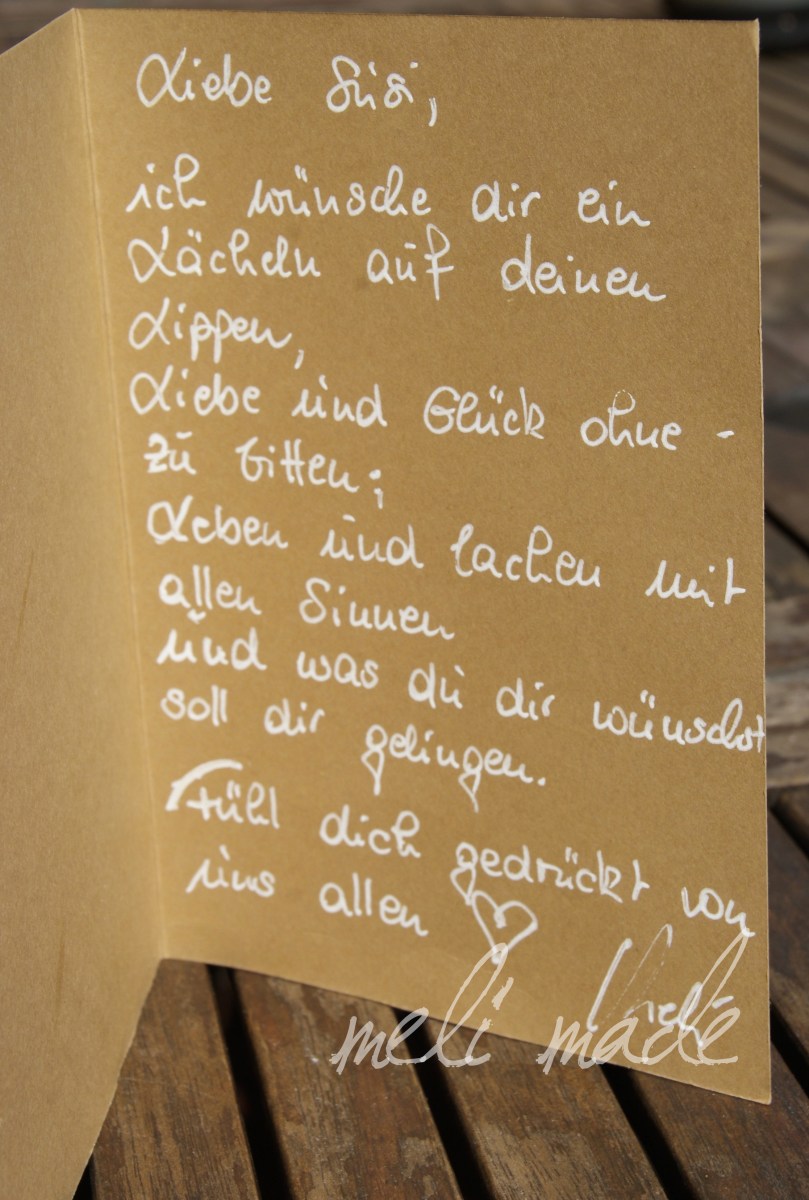 Liebe Susi,
ich wünsche dir ein
Lächeln auf deinen
Lippen,
Liebe und Glück ohne -
zu bitten;
Leben und lachen mit
allen Sinnen
und was du dir wünschst
soll dir gelingen.
Fühl dich gedrückt von
uns allen ♡
meli made